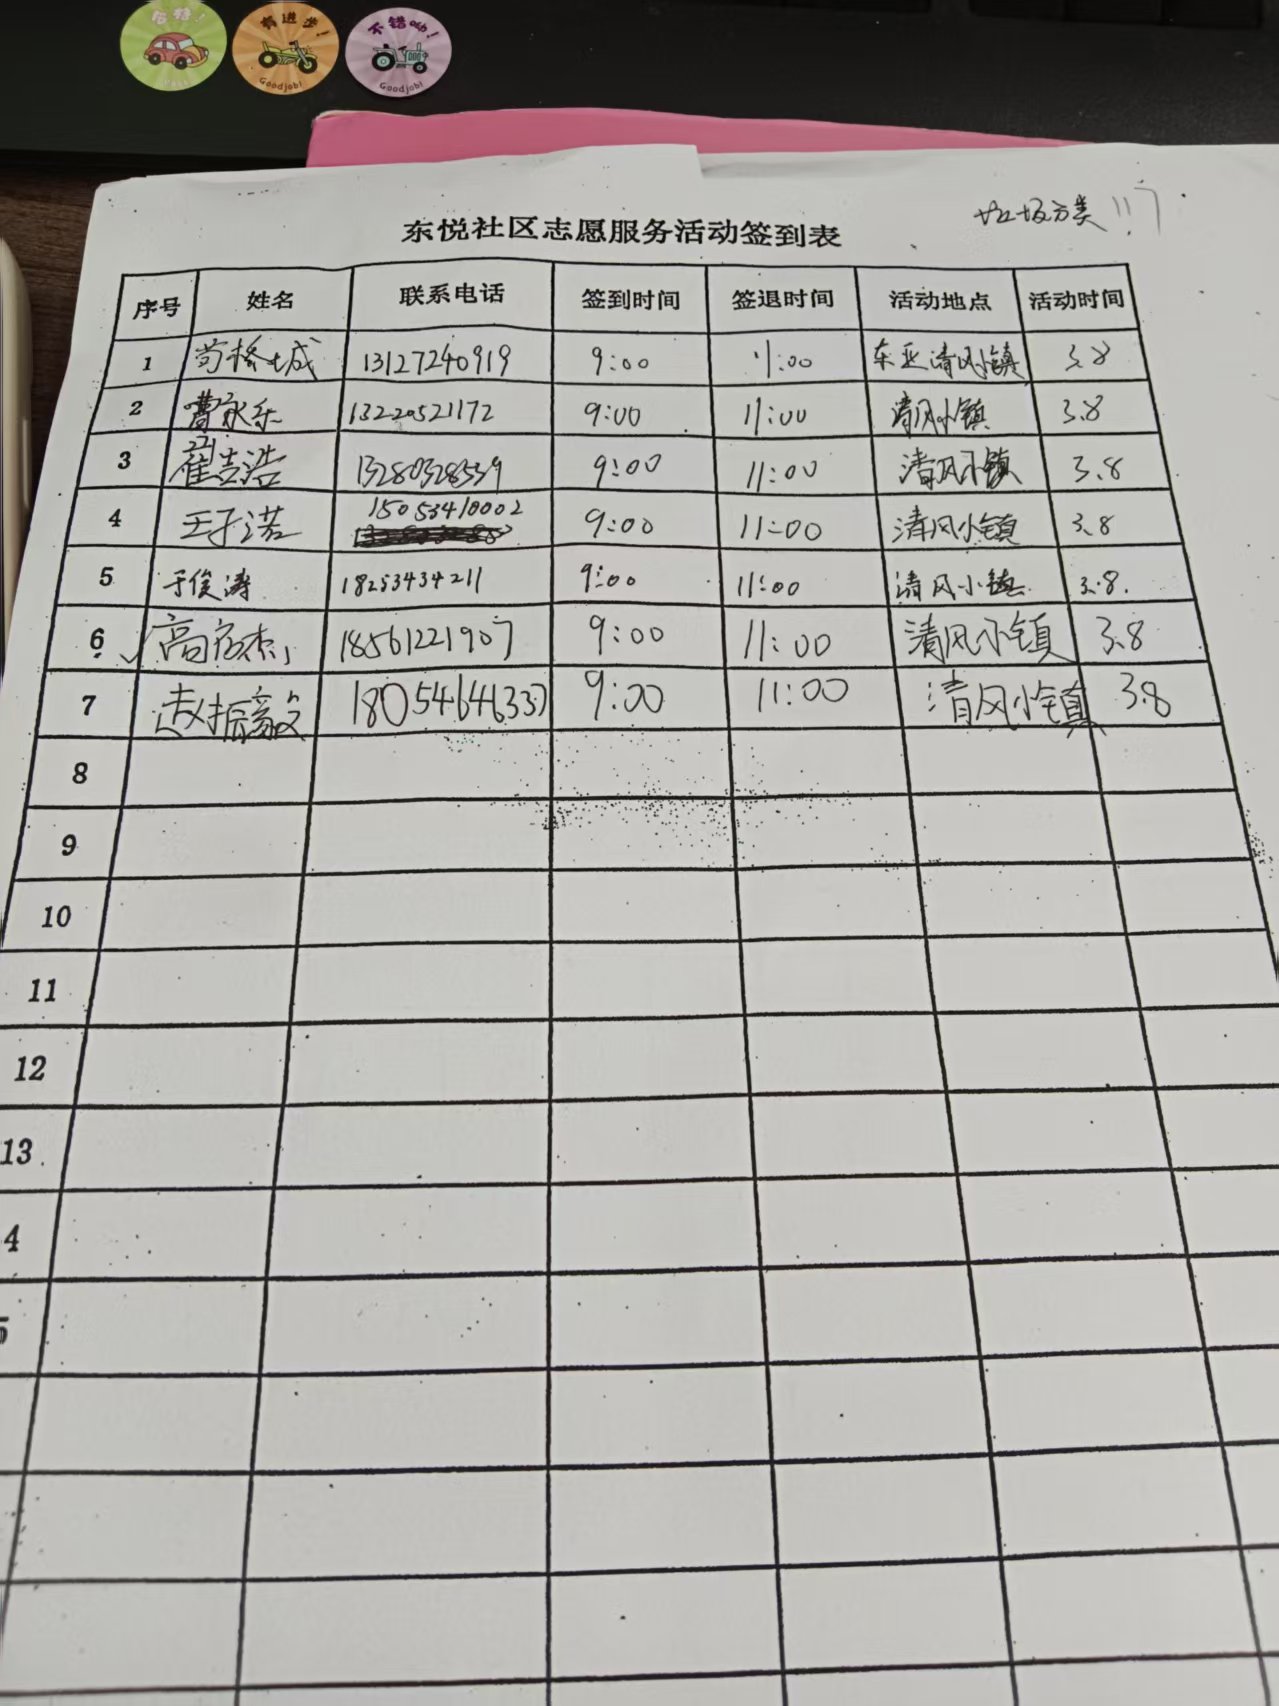 有进步！
Goodjob!
不错哟！
Goodjob!
垃圾分类
东悦社区志愿服务活动签到表
序号 姓名 联系电话 签到时间 签退时间 活动地点 活动时间
1 苟格城 13127240919 9:00 11:00 东亚清风小镇 3.8
2 曹永乐 13220521172 9:00 11:00 清风小镇 3.8
3 崔吉浩 13280328539 9:00 11:00 清风小镇 3.8
4 王子诺 15053410002 9:00 11:00 清风小镇 3.8
5 于俊涛 18253434211 9:00 11:00 清风小镇 3.8.
6 高 杰 18561221907 9:00 11:00 清风小镇 3.8
7 赵振毅 18054646337 9:00 11:00 清风小镇 3.8
8
9
10
11
12
13
4
5